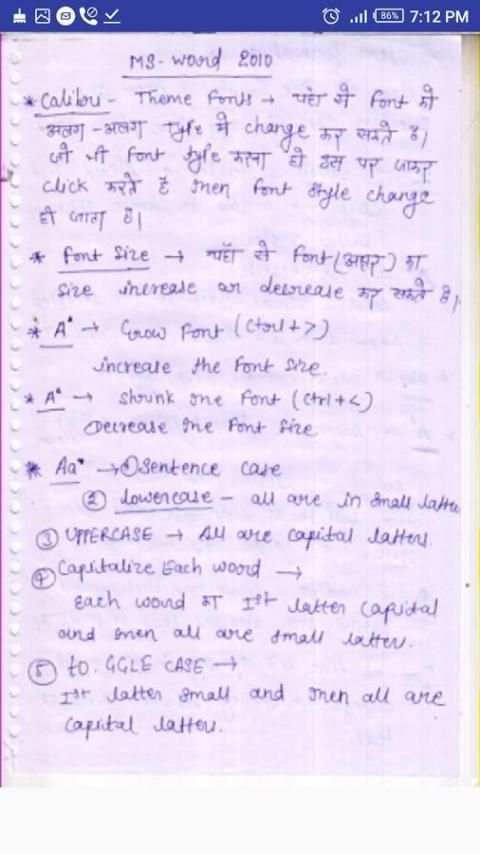 86% 7:12 PM
MS-Word 2010
* Calibri - Theme Fonts → यहाँ से Font को
अलग-अलग Type में change कर सकते है।
जो भी Font style करना हो उस पर जाकर
click करते है then Font style change
हो जाता है।
* Font Size → यहाँ से Font (अक्षर) का
size increase or decrease कर सकते है।
* A▲ → Grow Font (Ctrl+>)
increase the Font Size.
* A▲ → Shrink one Font (Ctrl+<)
Decrease the Font size
* Aa▾ → ① Sentence case
② lowercase - all are in small latter
③ UPPERCASE → All are capital latters.
④ Capitalize Each word →
Each word का Ist latter capital
and then all are small latter.
⑤ tO.GGLE CASE →
Ist latter small and then all are
capital latter.